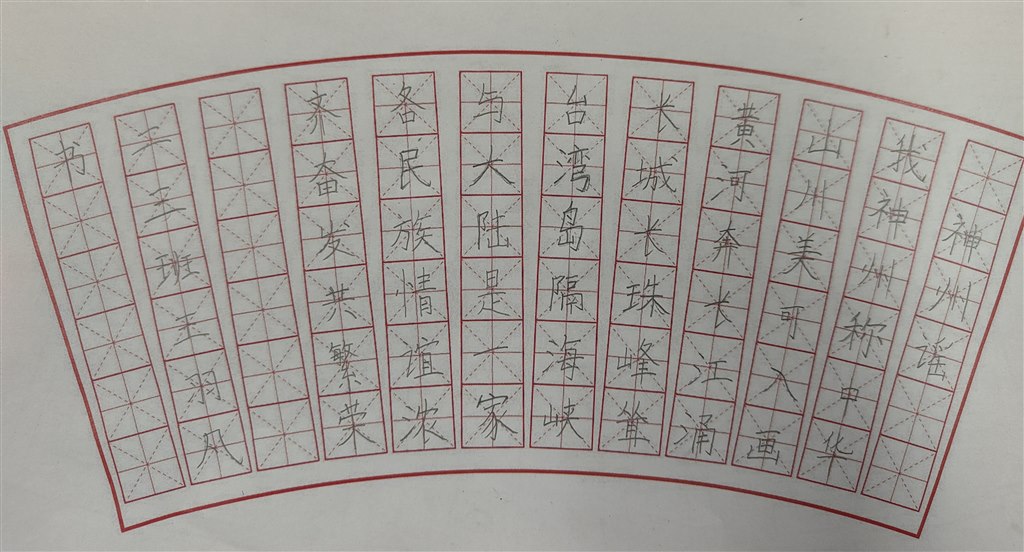 神州谣
我神州称中华
山川美可入画
黄河奔长江涌
长城长珠峰耸
台湾岛隔海峡
与大陆是一家
各民族情谊浓
齐奋发共繁荣
二王班王羽凡
书